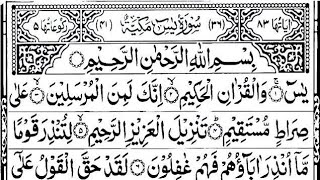 اٰيَاتُهَا ٨٣ (٣٦) سُوْرَةُ يٰسٓ مَكِّيَّةٌ (٤١) رُكُوْعَاتُهَا ٥
بِسْمِ اللّٰهِ الرَّحْمٰنِ الرَّحِيْمِ
يٰسٓ ۚ وَالْقُرْاٰنِ الْحَكِيْمِ ۙ اِنَّكَ لَمِنَ الْمُرْسَلِيْنَ ۙ عَلٰى
صِرَاطٍ مُّسْتَقِيْمٍ ؕ تَنْزِيْلَ الْعَزِيْزِ الرَّحِيْمِ ۙ لِتُنْذِرَ قَوْمًا
مَّاۤ اُنْذِرَ اٰبَآؤُهُمْ فَهُمْ غٰفِلُوْنَ لَقَدْ حَقَّ الْقَوْلُ عَلٰۤى